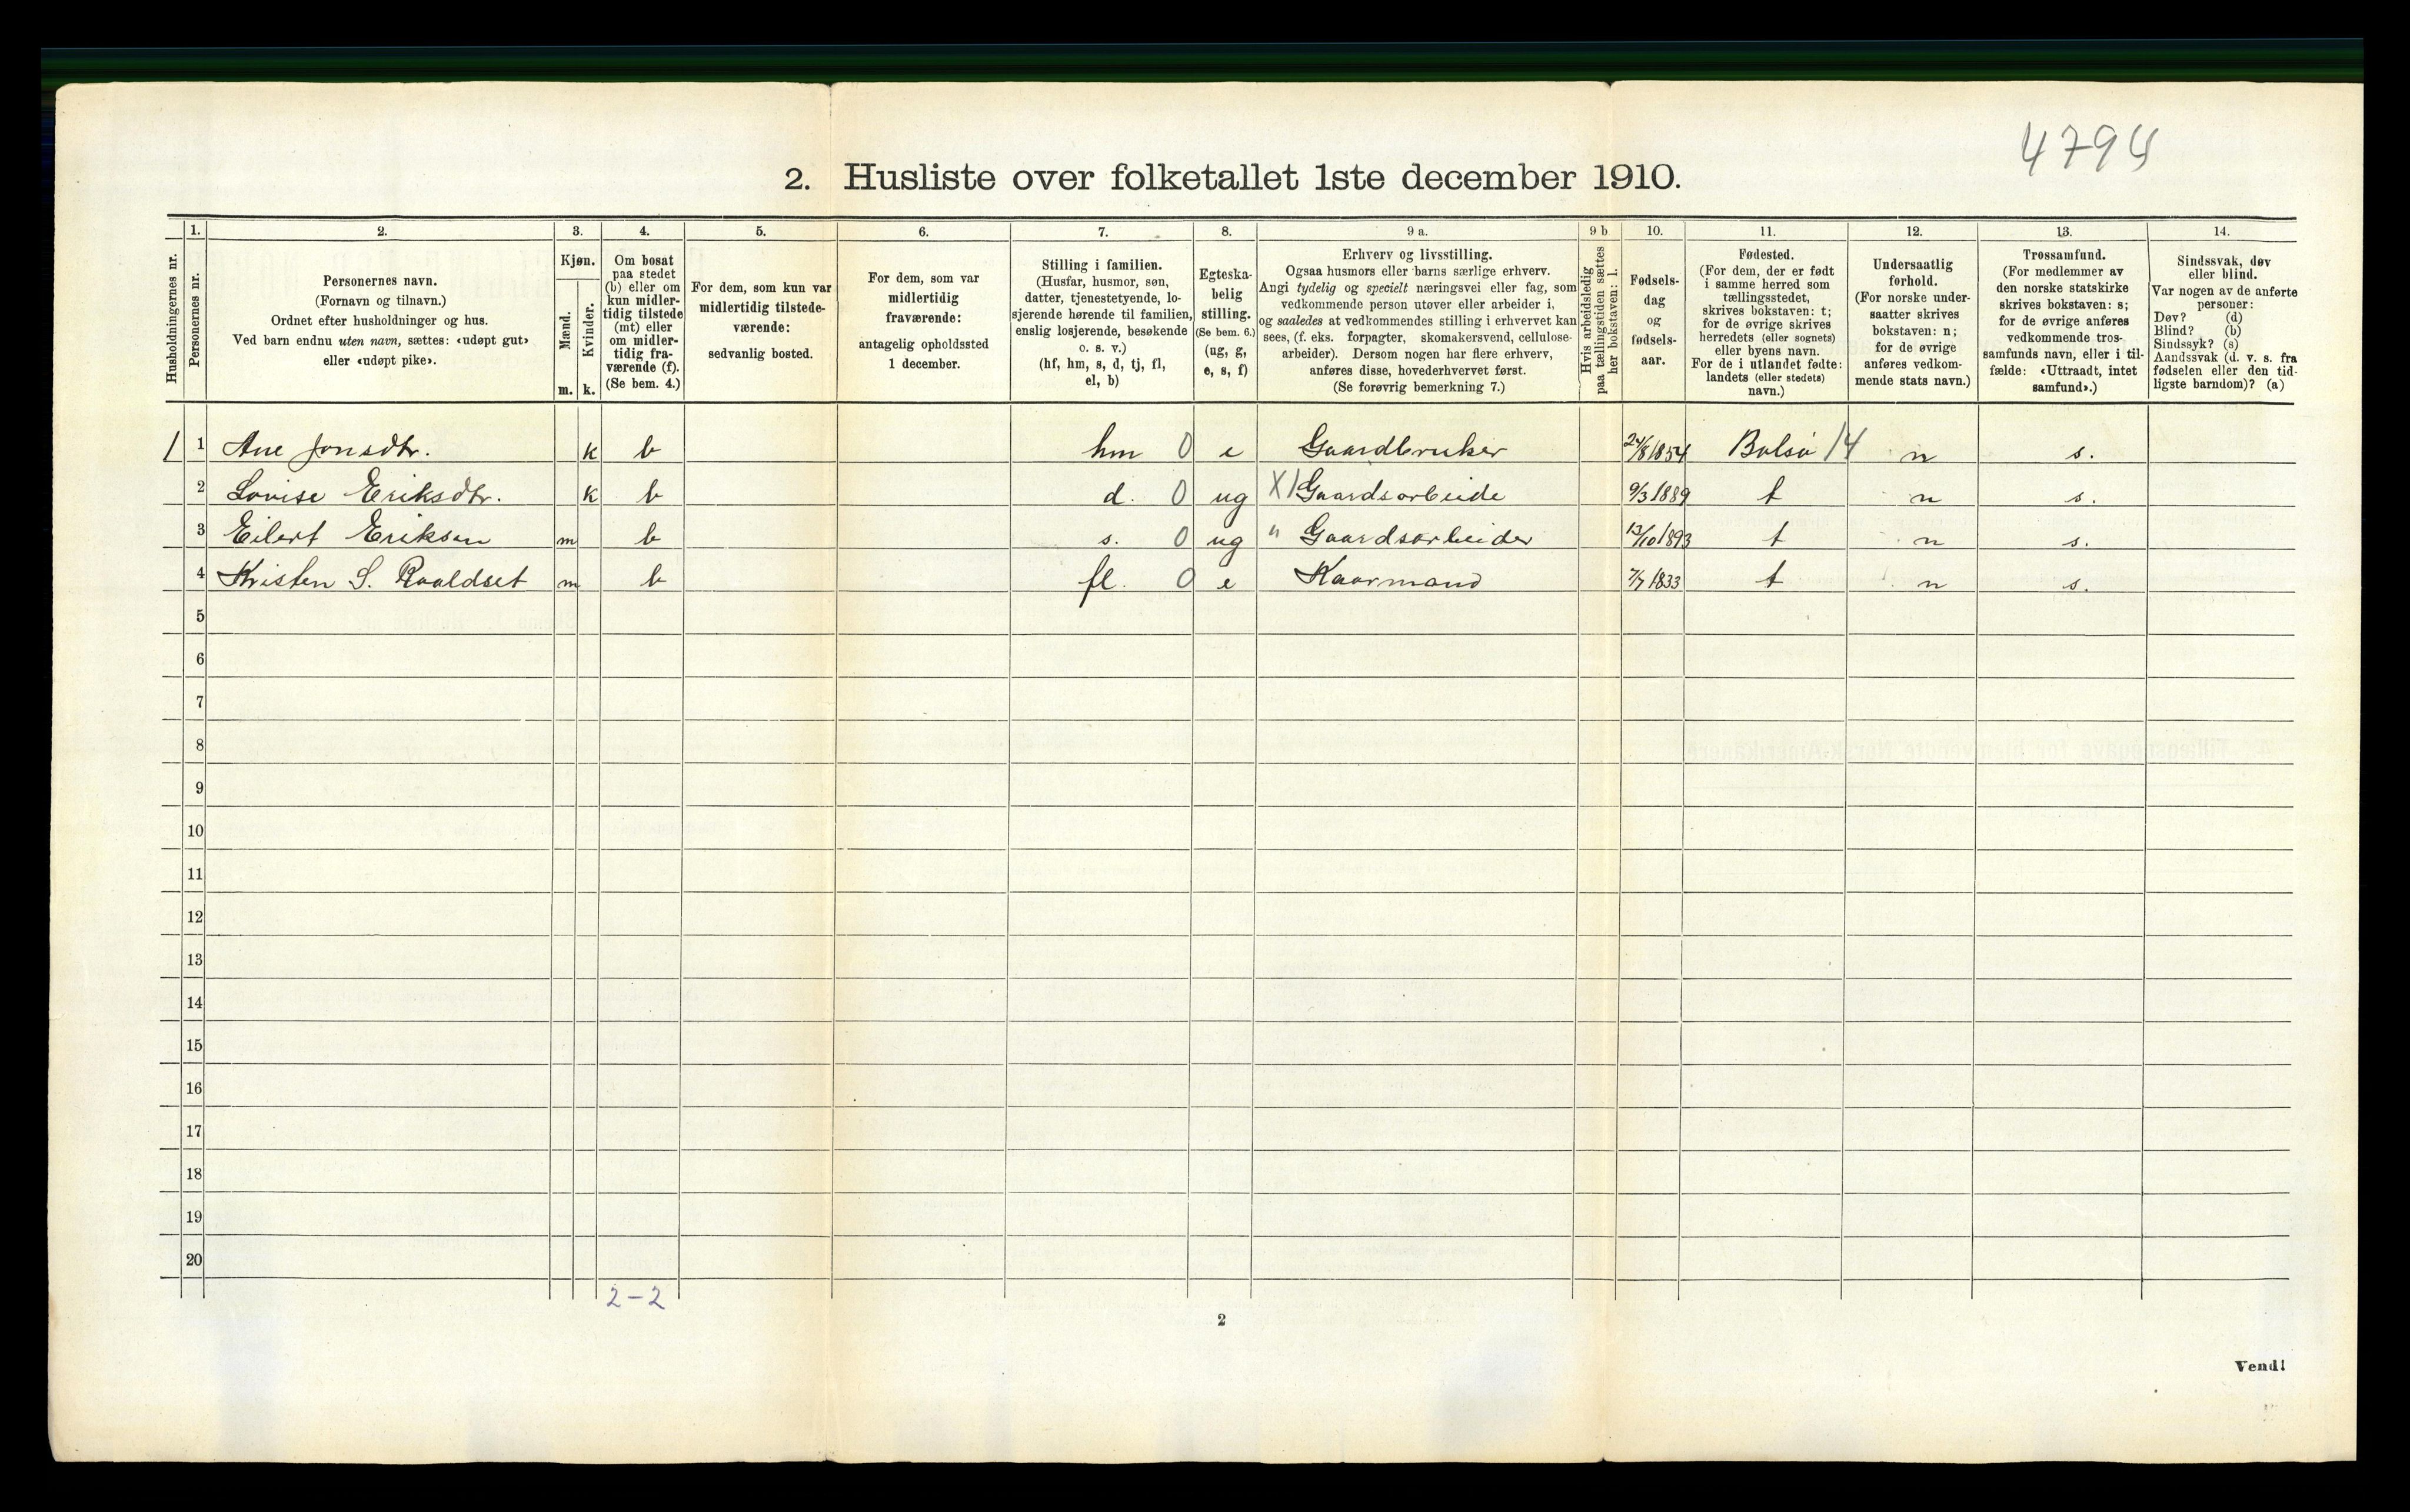 4794
2. Husliste over folketallet 1ste december 1910.
Husholdningernes nr.
1.
Personernes nr.
2.
Personernes navn.
(Fornavn og tilnavn.)
Ordnet efter husholdninger og hus.
Ved barn endnu uten navn, sættes: «udøpt gut»
eller «udøpt pike».
3.
Kjøn.
Mænd.
Kvinder.
m. k.
4.
Om bosat
paa stedet
(b) eller om
kun midler-
tidig tilstede
(mt) eller
om midler-
tidig fra-
værende (f).
(Se bem. 4.)
5.
For dem, som kun var
midlertidig tilstede-
værende:
sedvanlig bosted.
6.
For dem, som var
midlertidig
fraværende:
antagelig opholdssted
1 december.
7.
Stilling i familien.
(Husfar, husmor, søn,
datter, tjenestetyende, lo-
sjerende hørende til familien,
enslig losjerende, besøkende
o. s. v.)
(hf, hm, s, d, tj, fl,
el, b)
8.
Egteska-
belig
stilling.
(Se bem. 6.)
(ug, g,
e, s, f)
9 a.
Erhverv og livsstilling.
Ogsaa husmors eller barns særlige erhverv.
Angi tydelig og specielt næringsvei eller fag, som
vedkommende person utøver eller arbeider i,
og saaledes at vedkommendes stilling i erhvervet kan
sees, (f. eks. forpagter, skomakersvend, cellulose-
arbeider). Dersom nogen har flere erhverv,
anføres disse, hovederhvervet først.
(Se forøvrig bemerkning 7.)
9 b
Hvis arbeidsledig
paa tællingstiden sættes
her bokstaven: l.
10.
Fødsels-
dag
og
fødsels-
aar.
11.
Fødested.
(For dem, der er født
i samme herred som
tællingsstedet,
skrives bokstaven: t;
for de øvrige skrives
herredets (eller sognets)
eller byens navn.
For de i utlandet fødte:
landets (eller stedets)
navn.)
12.
Undersaatlig
forhold.
(For norske under-
saatter skrives
bokstaven: n;
for de øvrige
anføres vedkom-
mende stats navn.)
13.
Trossamfund.
(For medlemmer av
den norske statskirke
skrives bokstaven: s;
for de øvrige anføres
vedkommende tros-
samfunds navn, eller i til-
fælde: «Uttraadt, intet
samfund».)
14.
Sindssvak, døv
eller blind.
Var nogen av de anførte
personer:
Døv? (d)
Blind? (b)
Sindssyk? (s)
Aandssvak (d. v. s. fra
fødselen eller den tid-
ligste barndom)? (a)
1 1 Ane Jonsdtr. k b hm 0 e Gaardbruker 24/8 1854 Bolsø 14 n s.
2 Lovise Eriksdtr. k b d. 0 ug X1 Gaardsarbeide 9/3 1889 t n s.
3 Eilert Eriksen m b s. 0 ug " Gaardsarbeider 13/10 1893 t n s.
4 Kristen S. Raaldset m b fl. 0 e Kaarmand 7/7 1833 t n s.
5
6
7
8
9
10
11
12
13
14
15
16
17
18
19
20
2-2
2
Vend!